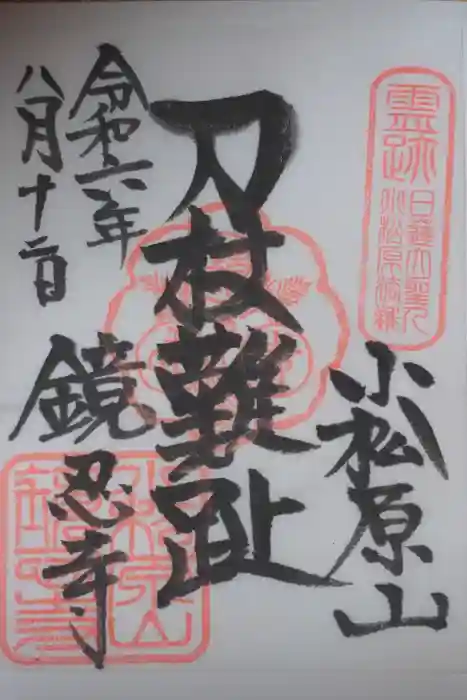 霊跡
日蓮大聖人
小松原法難
小松原山
刀杖難趾
令和六年
八月十二日
鏡忍寺